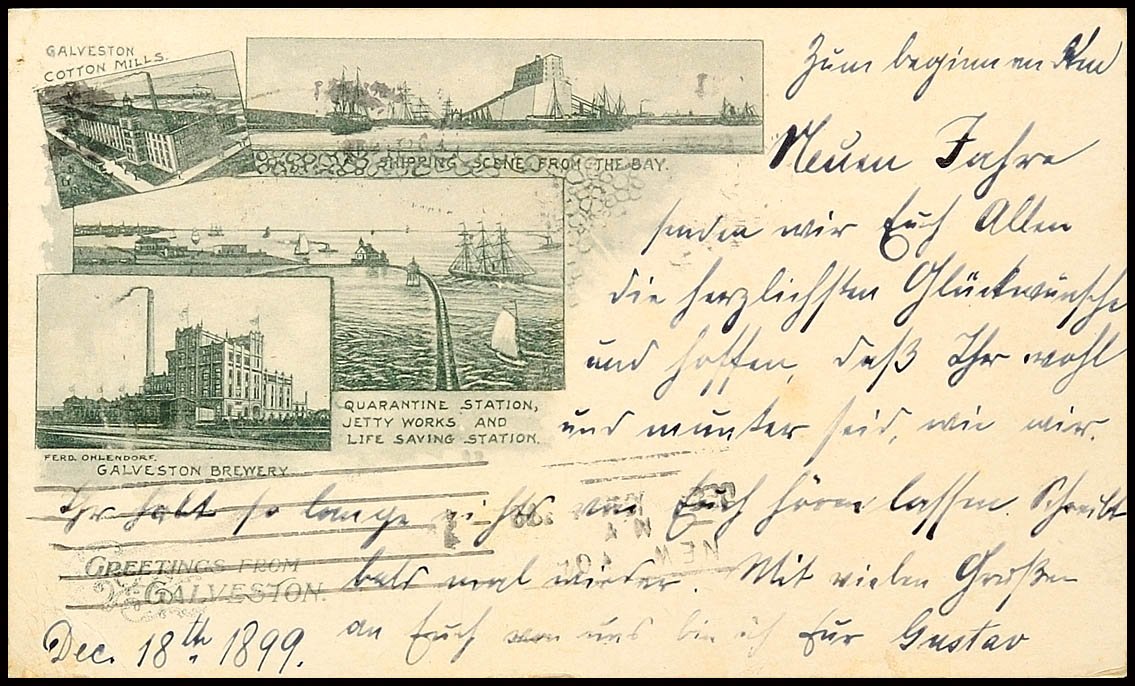 GALVESTON
COTTON MILLS.
SHIPPING SCENE FROM THE BAY.
QUARANTINE STATION,
JETTY WORKS AND
LIFE SAVING STATION.
FERD. OHLENDORF.
GALVESTON BREWERY.
GREETINGS FROM
GALVESTON.
Zum beginnen
Neuen Jahre
senden wir Euch Allen
die herzlichsten Glückwünsche
und hoffen, daß Ihr wohl
und munter seid, wie wir.
Ihr habt so lange nichts von Euch hören lassen. Schreibt
bald mal wieder. Mit vielen Grüßen
an Euch von uns bin ich Eur Gustav
Dec. 18th 1899.